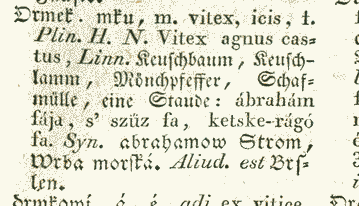 Drmek. mku, m. vitex, icis, f.
Plin. H. N. Vitex agnus cas=
tus, Linn. Keuschbaum, Keusch-
lamm, Mönchpfeffer, Schaf=
mülle, eine Staude: ábrahám
fája, s' szűz fa, ketske-rágó
fa. Syn. abrahamow Strom,
Wrba morská. Aliud. est Brs=
len.
drmkomí, á, é, adj. ex vitice